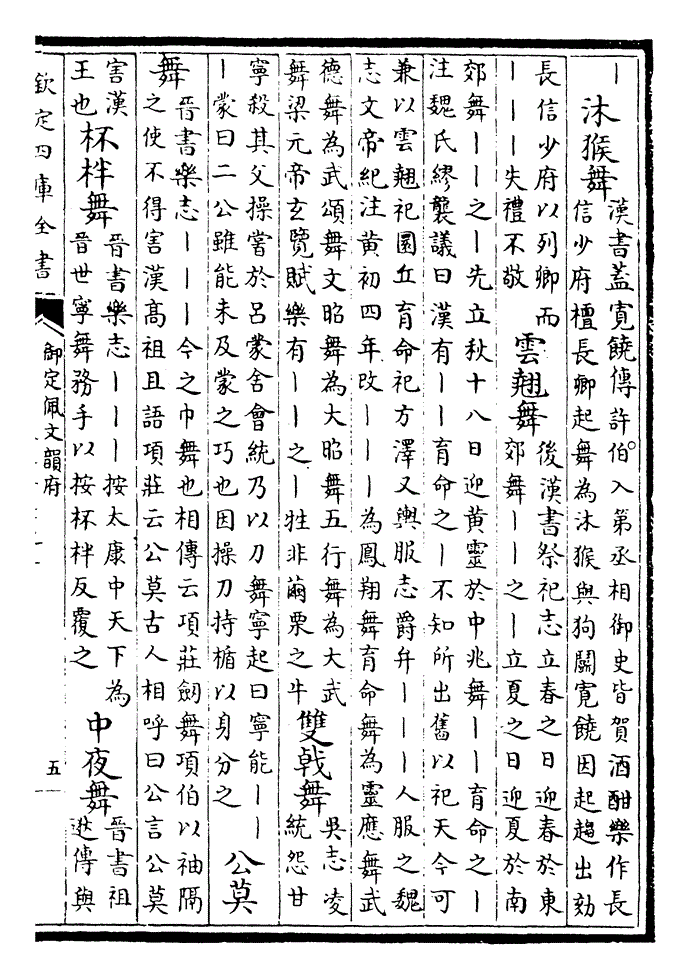 丨
沐猴舞
漢書蓋寬饒傳許伯入第丞相御史皆賀酒酣樂作長
信少府檀長卿起舞為沐猴與狗鬭寬饒因起趨出劾
長信少府以列卿而
丨丨丨失禮不敬
雲翹舞
後漢書祭祀志立春之日迎春於東
郊舞丨丨之丨立夏之日迎夏於南
郊舞丨丨之丨先立秋十八日迎黃靈於中兆舞丨丨育命之丨
注魏氏繆襲議曰漢有丨丨育命之丨不知所出舊以祀天今可
兼以雲翹祀圜丘育命祀方澤又輿服志爵弁丨丨丨人服之魏
志文帝紀注黃初四年改丨丨丨為鳳翔舞育命舞為靈應舞武
德舞為武頌舞文昭舞為大昭舞五行舞為大武
舞梁元帝玄覽賦樂有丨丨之丨牲非繭栗之牛
雙戟舞
吳志凌
統怨甘
寧殺其父操嘗於呂蒙舍會統乃以刀舞寧起曰寧能丨丨
丨蒙曰二公雖能未及蒙之巧也因操刀持楯以身分之
公莫
舞
晉書樂志丨丨丨今之巾舞也相傳云項莊劒舞項伯以袖隔
之使不得害漢高祖且語項莊云公莫古人相呼曰公言公莫
害漢
王也
杯柈舞
晉書樂志丨丨丨按太康中天下為
晉世寧舞務手以按杯柈反覆之
中夜舞
晉書祖
逖傳與
欽定四庫全書
御定佩文韻府
五